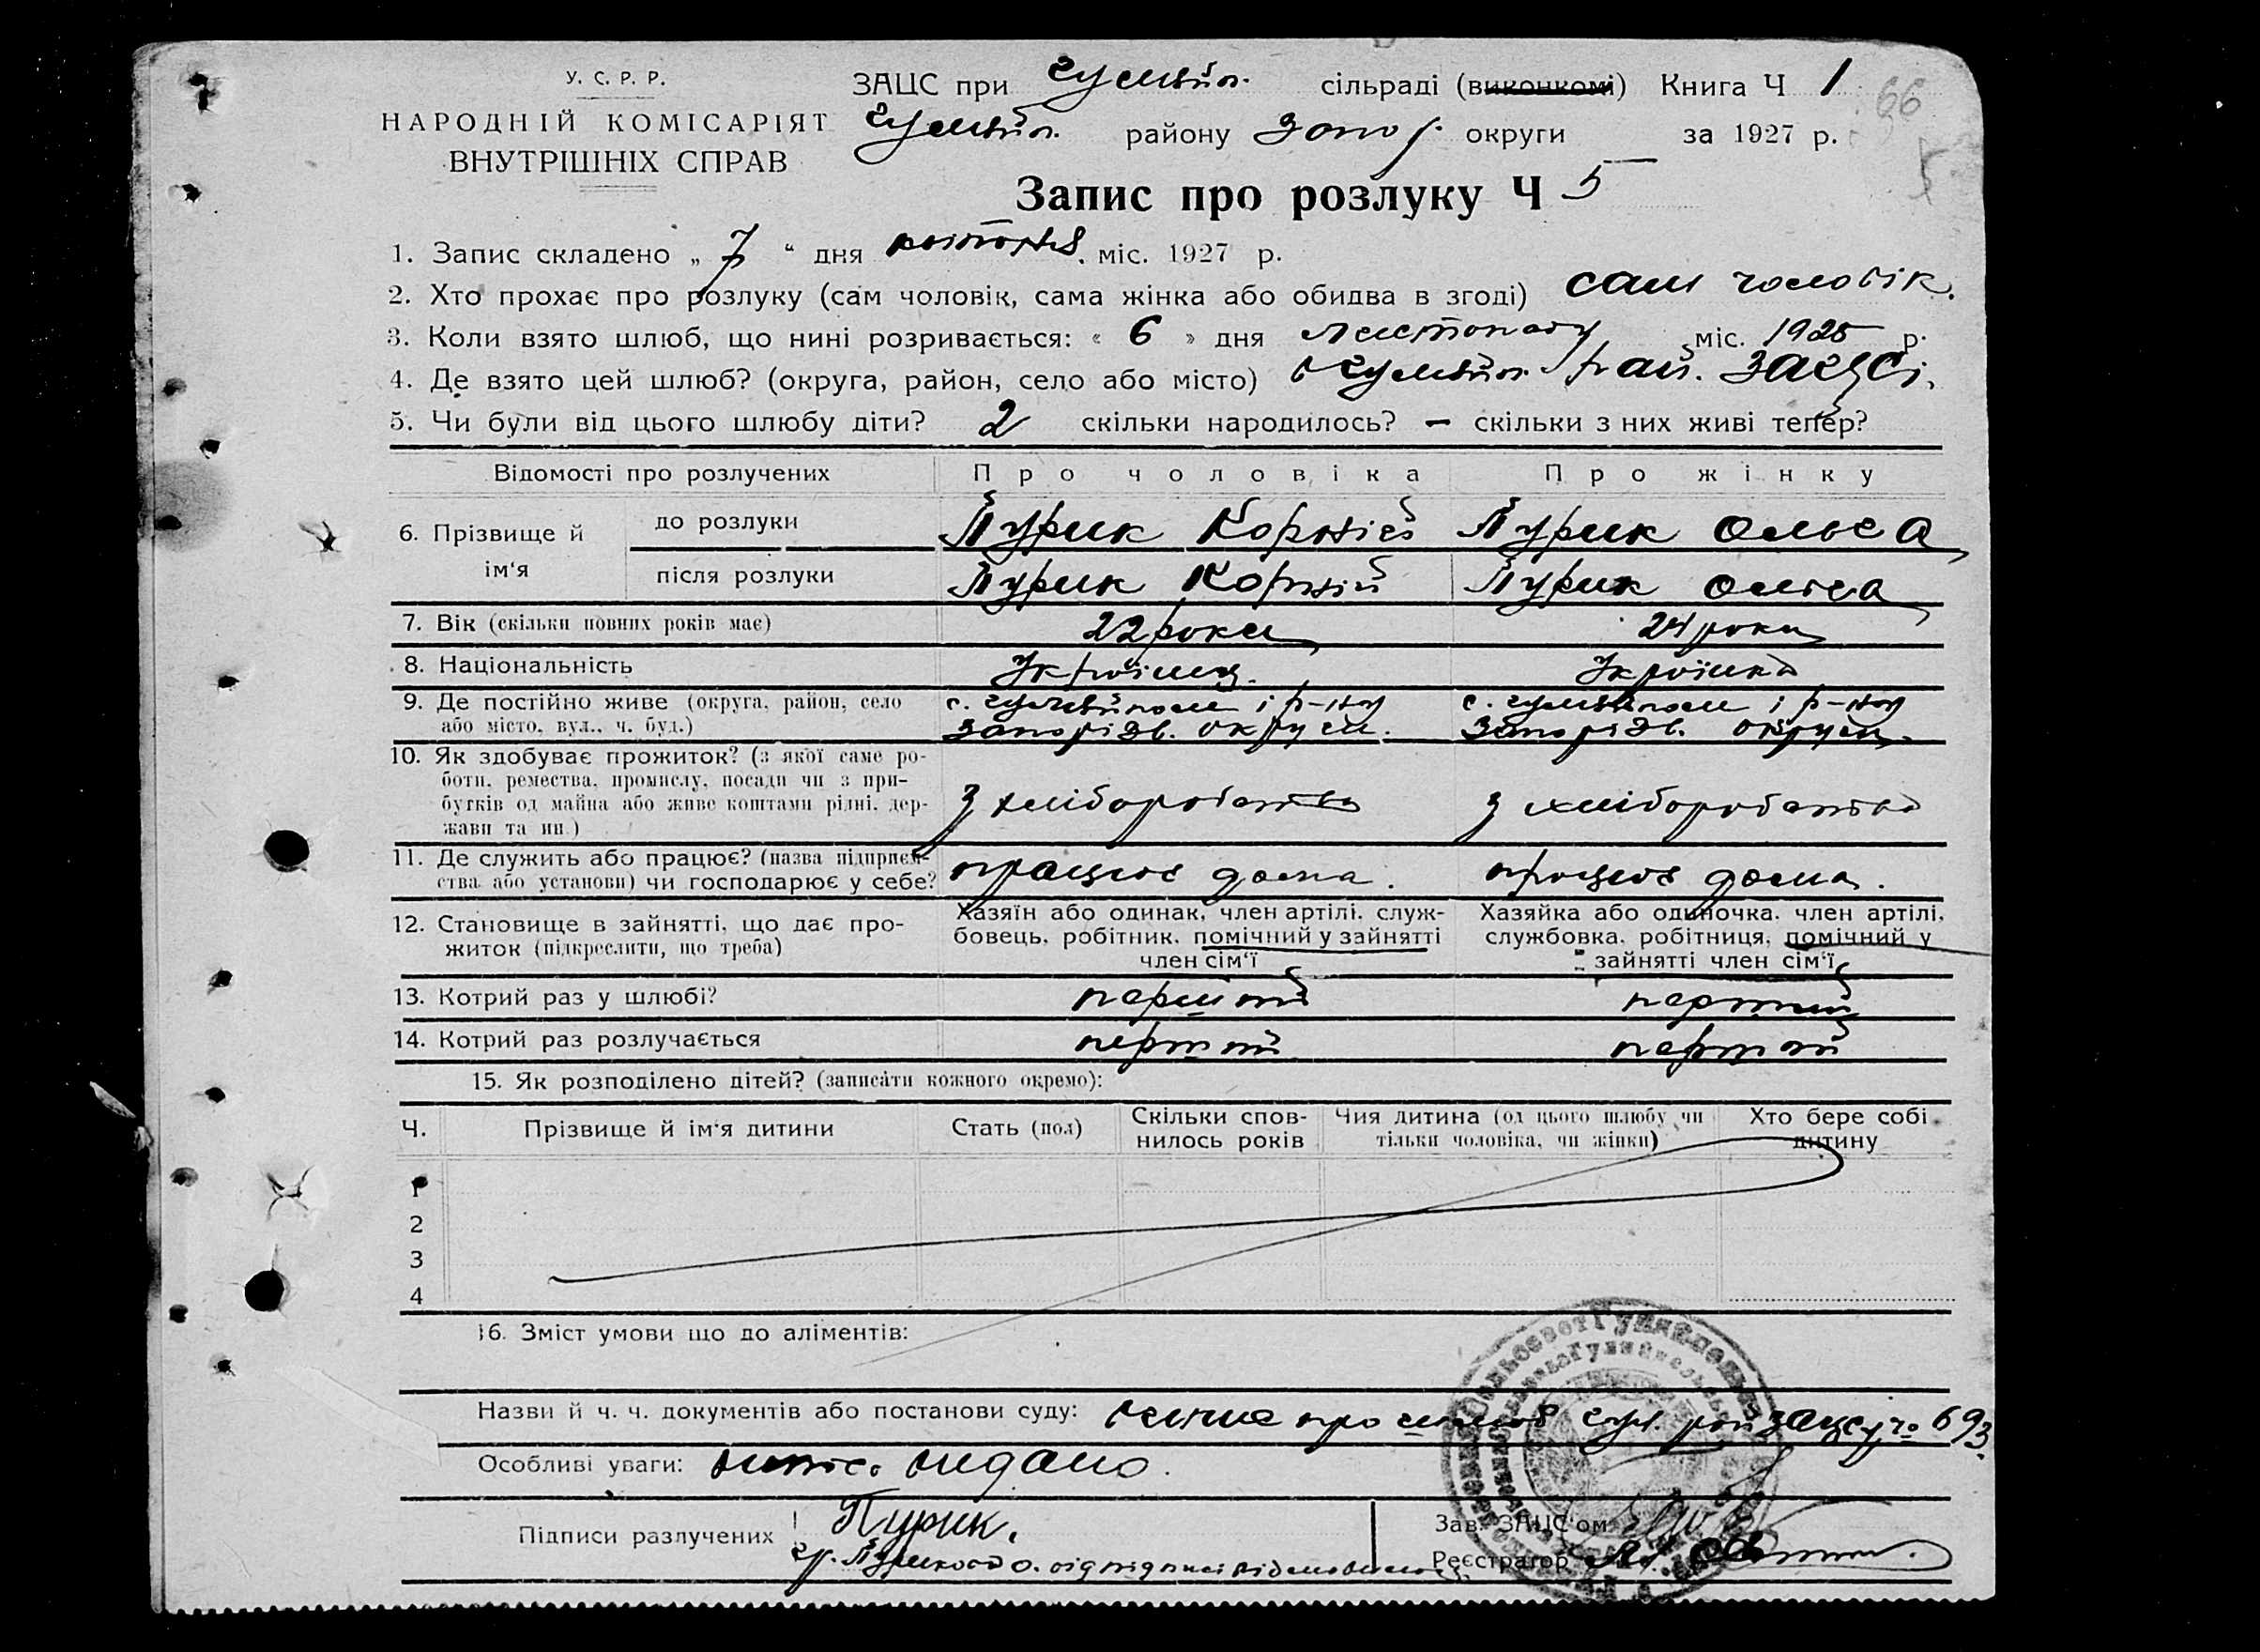 У. С. Р. Р.
НАРОДНІЙ КОМІСАРІЯТ
ВНУТРІШНІХ СПРАВ
ЗАЦС при Гуляйп. сільраді (виконкомі) Книга Ч 1
66
Гуляйп. району Запор. округи за 1927 р.
5
Запис про розлуку Ч 5
1. Запис складено „ 7 “ дня квітня міс. 1927 р.
2. Хто прохає про розлуку (сам чоловік, сама жінка або обидва в згоді) сам чоловік.
3. Коли взято шлюб, що нині розривається: « 6 » дня листопаду міс. 1925 р.
4. Де взято цей шлюб? (округа, район, село або місто) в Гуляйп. рай. ЗАГСі.
5. Чи були від цього шлюбу діти? 2 скільки народилось? — скільки з них живі тепер?
Відомості про розлучених Про чоловіка Про жінку
6. Прізвище й ім‘я до розлуки Пурик Корній Пурик Ольга
після розлуки Пурик Корній Пурик Ольга
7. Вік (скільки повних років має) 22 роки 24 роки
8. Національність Українец. Українка
9. Де постійно живе (округа, район, село с. Гуляйполе і р-ну с. Гуляйполе і р-ну
або місто, вул., ч. буд.) Запорізв. округи. Запорізв. округи.
10. Як здобуває прожиток? (з якої саме ро-
боти, ремества, промислу, посади чи з при-
бутків од майна або живе коштами рідні, дер- З хліборобства З хліборобства
жави та ин.)
11. Де служить або працює? (назва підприєм- працює дома. працює дома.
ства або установи) чи господарює у себе?
12. Становище в зайнятті, що дає про-
житок (підкреслити, що треба)
Хазяїн або одинак, член артілі, служ-
бовець, робітник, помічний у зайнятті
член сім‘ї
Хазяйка або одиночка, член артілі,
службовка, робітниця, помічний у
зайнятті член сім‘ї
13. Котрий раз у шлюбі? перший перший
14. Котрий раз розлучається перший перший
15. Як розподілено дітей? (записати кожного окремо):
Ч. Прізвище й ім‘я дитини Стать (пол) Скільки спов-
нилось років Чия дитина (од цього шлюбу чи
тільки чоловіка, чи жінки) Хто бере собі
дитину
1
2
3
4
16. Зміст умови що до аліментів:
Назви й ч. ч. документів або постанови суду: про шлюб Гул. рай ЗАЦСу № 693.
Особливі уваги: видано.
Підписи разлучених Пурик.
гр. О. від підписі відмовилась
Зав. ЗАЦС‘ом
Реєстратор